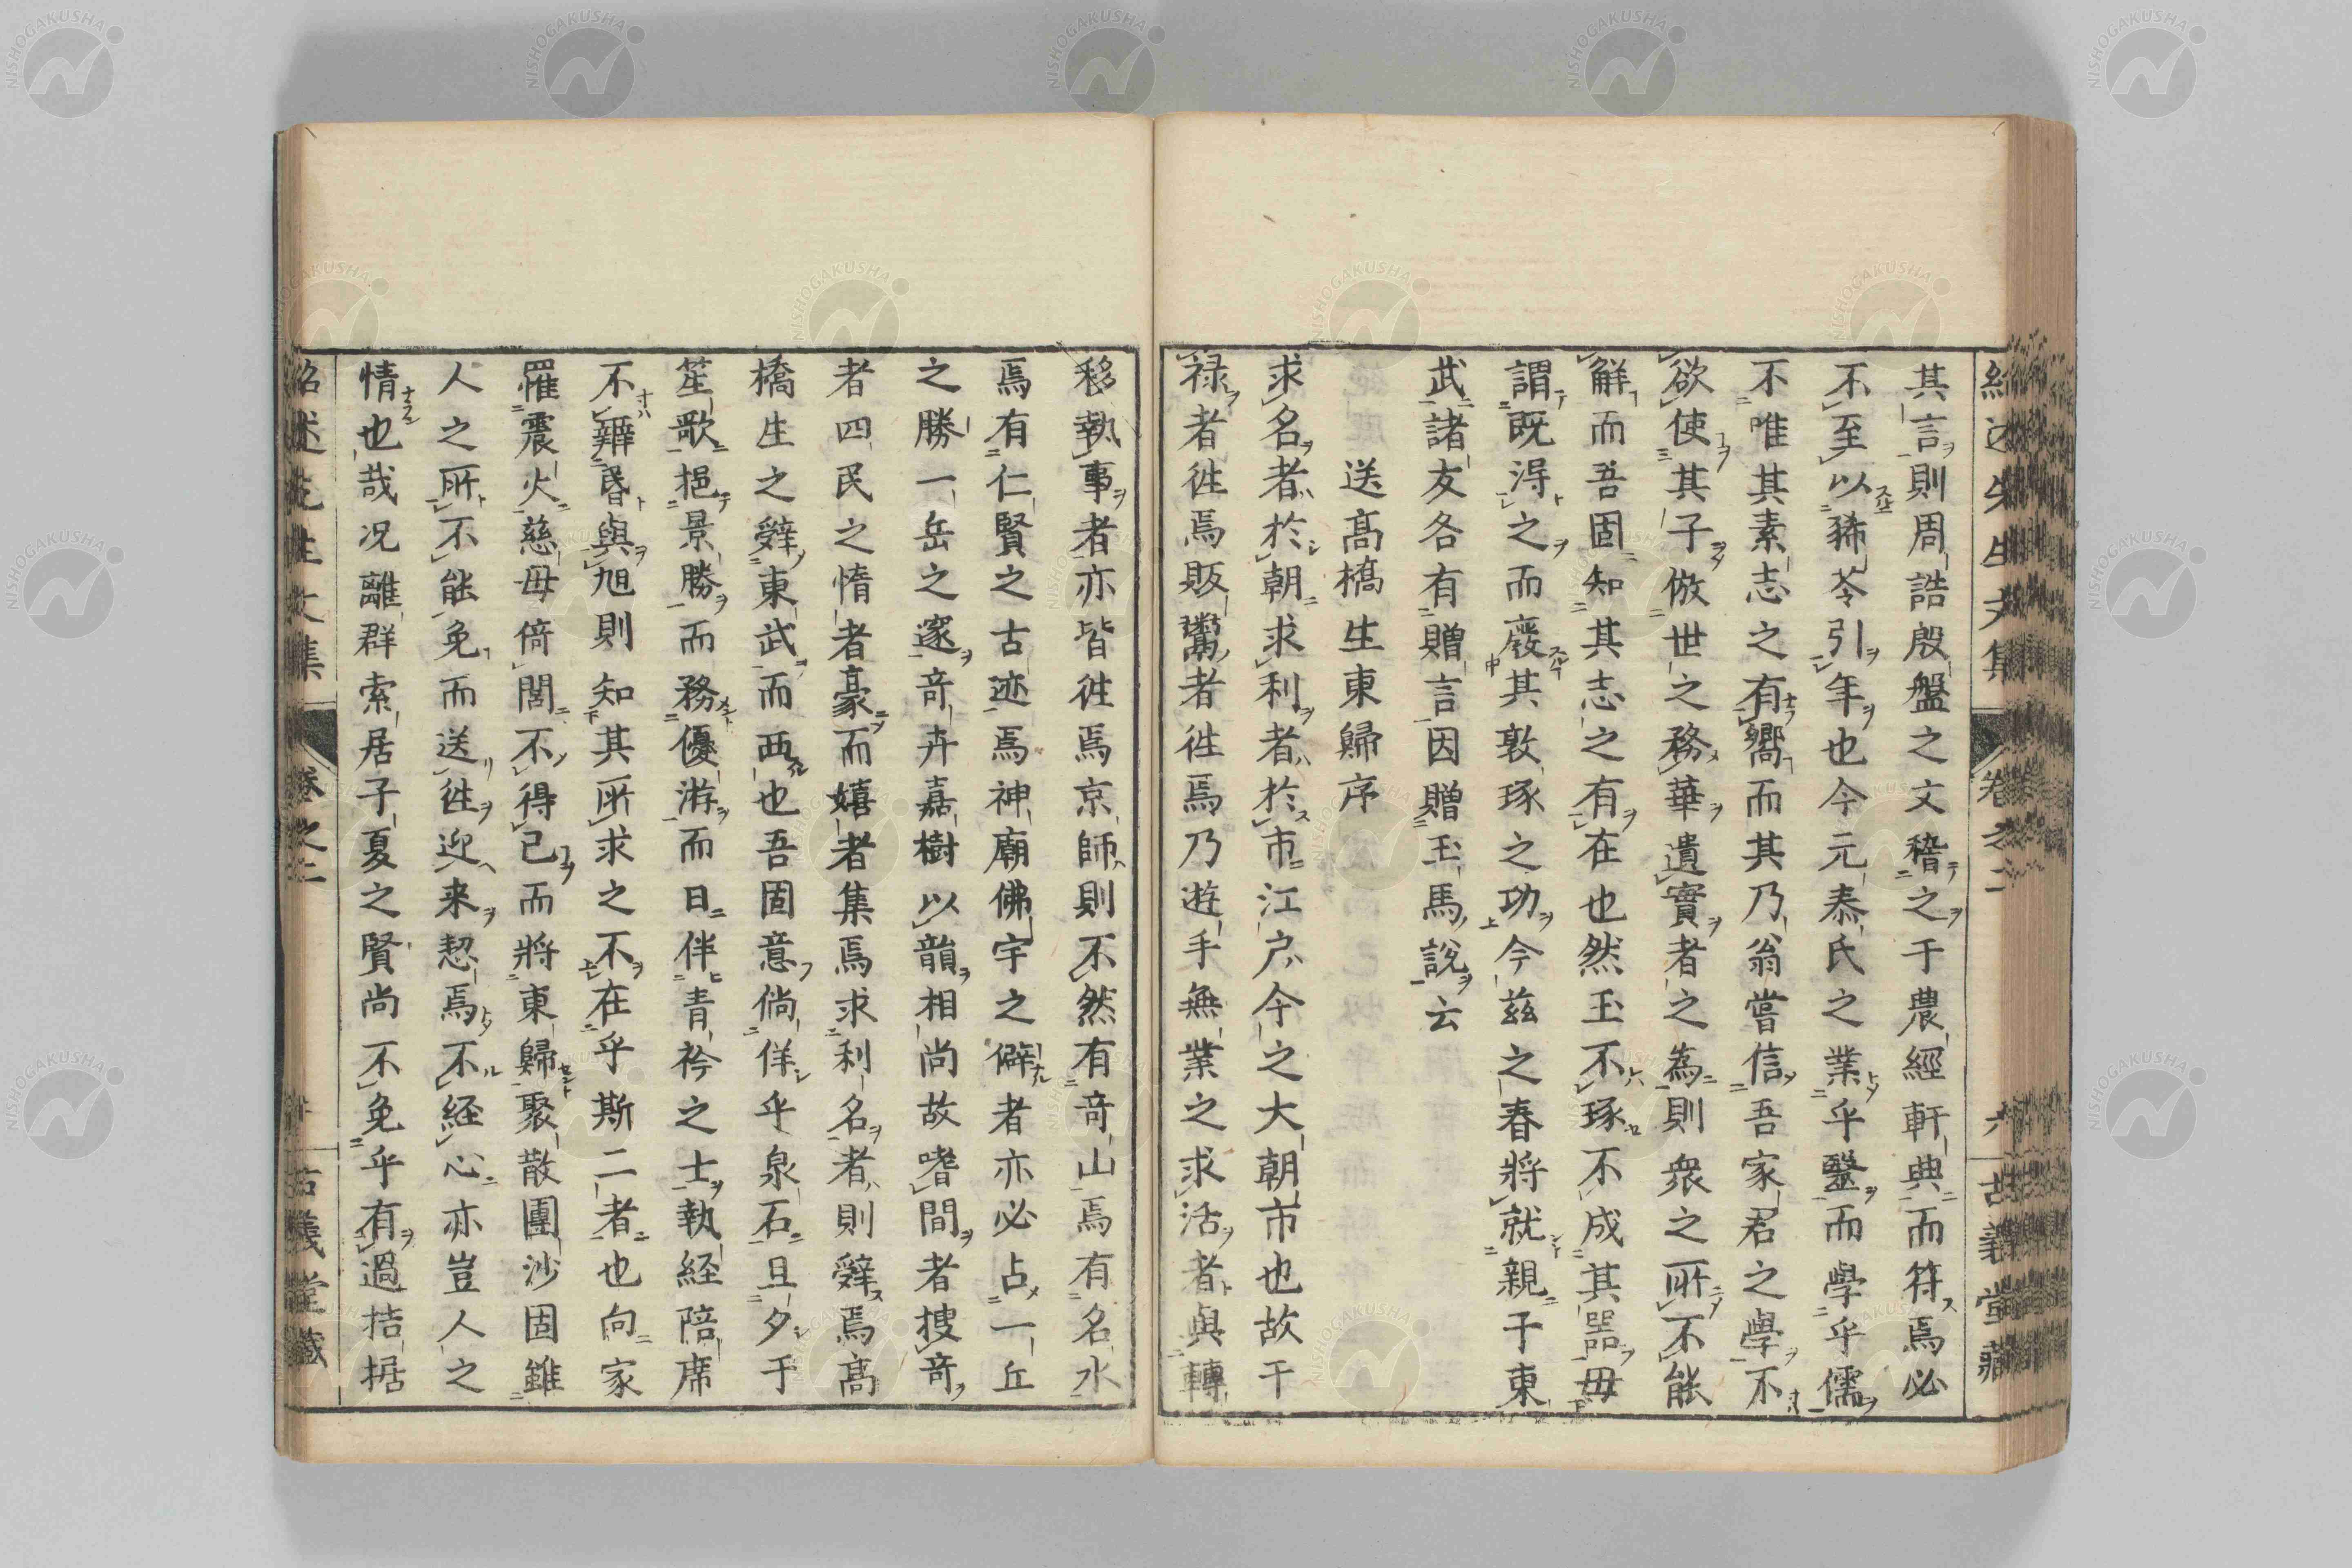 其言則周誥殷盤之文稽之于農經軒典而符焉必
不至以豨苓引年也今元泰氏之業乎毉而學乎儒
不唯其素志之有嚮而其乃翁嘗信吾家君之學不
欲使其子倣世之務華遺實者之為則衆之所不能
解而吾固知其志之有在也然玉不琢不成其器毋
謂既淂之而廢其敦琢之功今茲之春將就親于東
武諸友各有贈言因贈玉馬說云
送髙橋生東歸序
求名者於朝求利者於市江户今之大朝市也故干
禄者徃焉販鬻者徃焉乃遊手無業之求活者與轉
移執事者亦皆徃焉京師則不然有竒山焉有名水
焉有仁賢之古迹焉神廟佛宇之僻者亦必占一丘
之勝一岳之邃竒卉嘉樹以韻相尚故嗜間者搜竒
者四民之惰者豪而嬉者集焉求利名者則辤焉髙
橋生之辤東武而西也吾固意倘佯乎泉石且夕于
笙歌挹景勝而務優游而日伴青衿之士執経陪席
不辨昏與旭則知其所求之不在乎斯二者也向家
罹震火慈母倚閭不得已而將東歸聚散團沙固雖
人之所不能免而送徃迎来恝焉不経心亦豈人之
情也哉况離群索居子夏之賢尚不免乎有過拮据
紹述先生文集 卷之二 六 古義堂藏
紹述先生文集 卷之二 古義堂藏
NISHOGAKUSHA